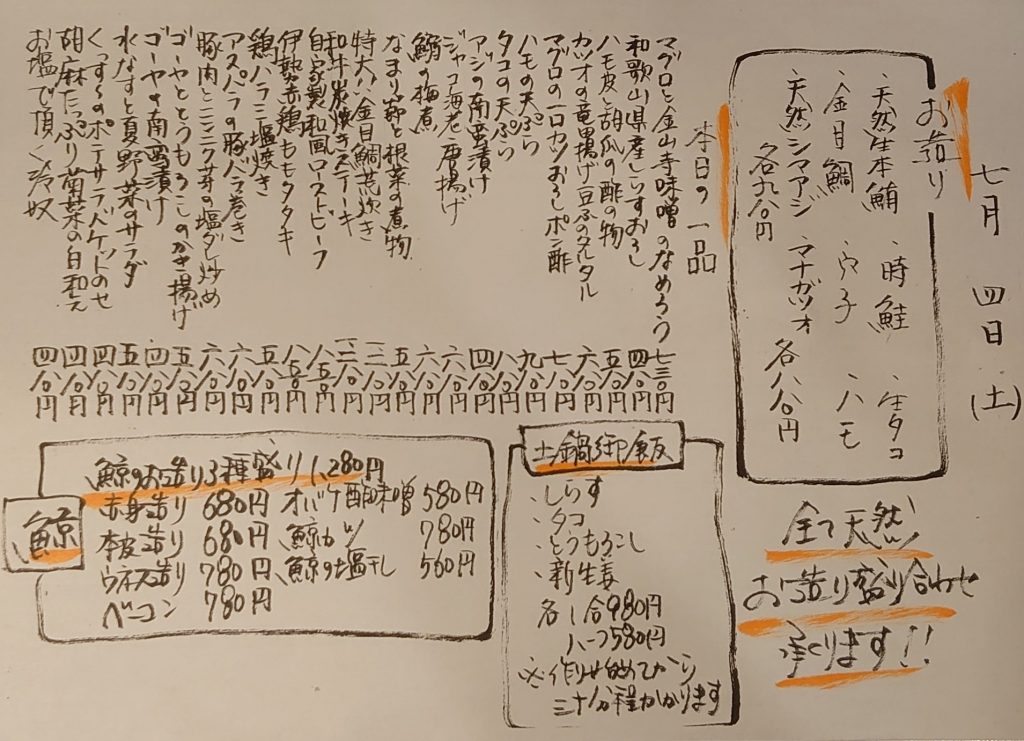 七月四日(土)
お造り
、天然生本鮪 、時鮭 、生タコ
、金目鯛 、穴子 、ハモ
、天然シマアジ 、マナガツオ 各八八〇円
各九八〇円
全て天然
お造り盛り合わせ
承ります!!
本日の一品
マグロと金山寺味噌のなめろう 七三〇円
和歌山県産しらすおろし 四八〇円
ハモ皮と胡瓜の酢の物 五八〇円
カツオの竜田揚げ豆ふのタルタル 六八〇円
マグロの一口カツおろしポン酢 七八〇円
ハモの天ぷら 九八〇円
タコの天ぷら 八八〇円
アジの南蛮漬け 四八〇円
ジャコ海老唐揚げ 六八〇円
鰯の梅煮 六八〇円
なまり節と根菜の煮物 五八〇円
特大!!金目鯛荒炊き
和牛炭焼きステーキ
自家製和風ローストビーフ
伊勢赤鶏ももタタキ 八五〇円
鶏ハラミ塩焼き 五八〇円
アスパラの豚バラ巻き 六八〇円
豚肉とニンニク芽の塩ダレ炒め 六八〇円
ゴーヤととうもろこしのかき揚げ 五八〇円
ゴーヤの南蛮漬け 四八〇円
水なすと夏野菜のサラダ 五八〇円
くっす〜のポテサラバケットのせ 四八〇円
胡麻たっぷり菊菜の白和え 四八〇円
お塩で頂く冷奴 四八〇円
土鍋御飯
、しらす
、タコ
、とうもろこし
、新生姜
各一合980円
ハーフ580円
※作り始めてから
三十分程かかります
鯨
鯨のお造り3種盛り 1,280円
赤身造り 680円 オバケ酢味噌 580円
本皮造り 680円 鯨カツ 780円
ウネス造り 780円 鯨の塩干し 560円
ベーコン 780円